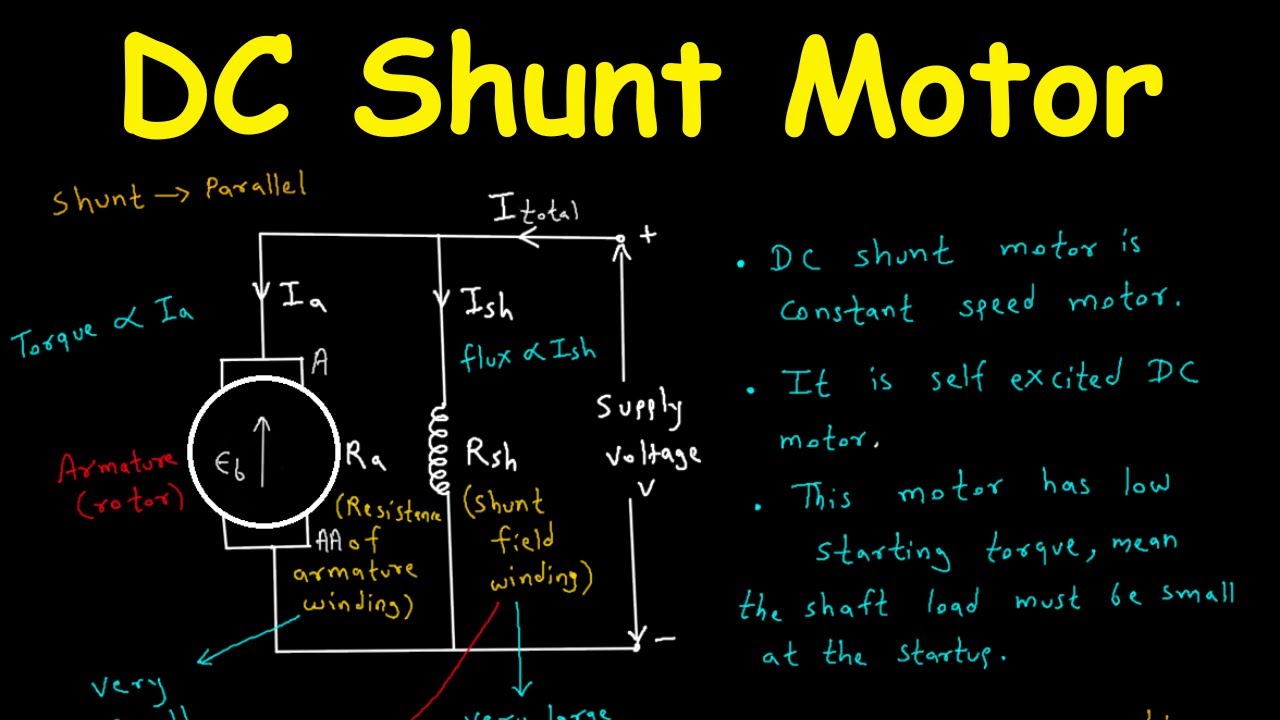 DC Shunt Motor
Shunt → Parallel
I total
+
Ia
Ish
Torque ∝ Ia
flux ∝ Ish
A
Supply
voltage
V
Eb
Ra
Rsh
Armature
(rotor)
(Resistance
AA of
armature
winding)
(Shunt
field
winding)
−
very
very large
• DC shunt motor is
constant speed motor.
• It is self excited DC
motor.
• This motor has low
starting torque, mean
the shaft load must be small
at the startup.